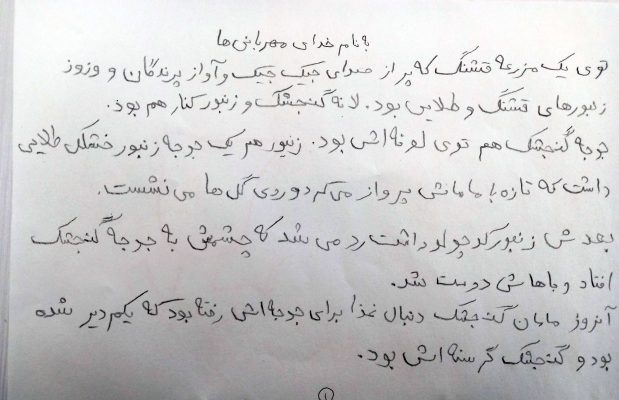 به نام خدای مهربانی‌ها
توی یک مزرعه قشنگ که پر از صدای جیک جیک و آواز پرندگان و وزوز
زنبورهای قشنگ و طلایی بود. لانه گنجشک و زنبور کنار هم بود.
جوجه گنجشک هم توی لونه‌اش بود. زنبور هم یک جوجه زنبور خشگل طلایی
داشت که تازه با مامانش پرواز می‌کرد و روی گل‌ها می‌نشست.
بعدش زنبور کوچولو داشت رد می‌شد که چشمش به جوجه گنجشک
افتاد و باهاش دوست شد.
آنروز مامان گنجشک دنبال غذا برای جوجه‌اش رفته بود که یکم دیر شده
بود و گنجشک گرسنه‌اش بود.
۱